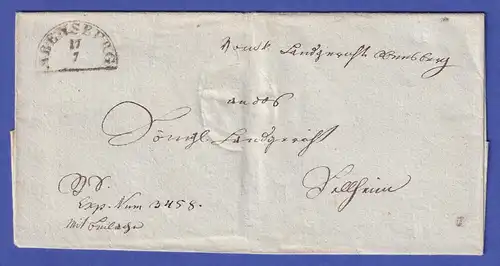 ABENSBERG
17
7
Vom k. Landgericht Abensberg
an das
Königl. Landgericht
Pellheim
Exp. Num 3458.
Mit Beilage